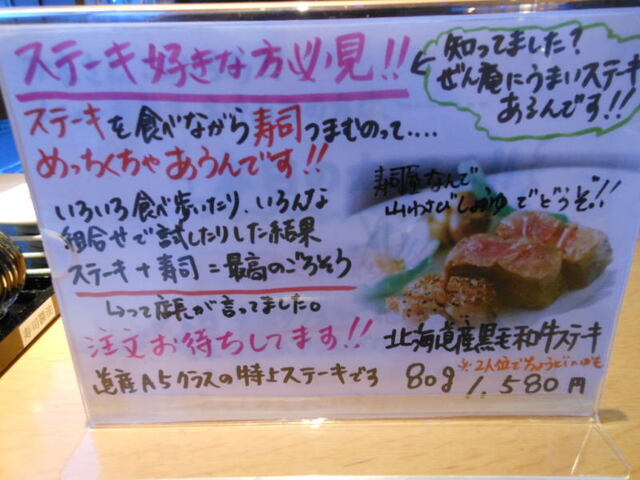 ステーキ好きな方必見!!
←知ってました?
ぜん庵にうまいステーキ
あるんです!!
ステーキを食べながら寿司つまむのって....
めっちくちゃあうんです!!
いろいろ食べ歩いたり、いろんな
組合せで試したりした結果
ステーキ+寿司=最高のごちそう
って店長が言ってました。
寿司屋なんで
山わさびしょうゆでどうぞ!!
注文お待ちしてます!!
北海道産黒毛和牛ステーキ
※2人位でちょうどいいかも
道産A5クラスの特上ステーキです
80g 1,580円